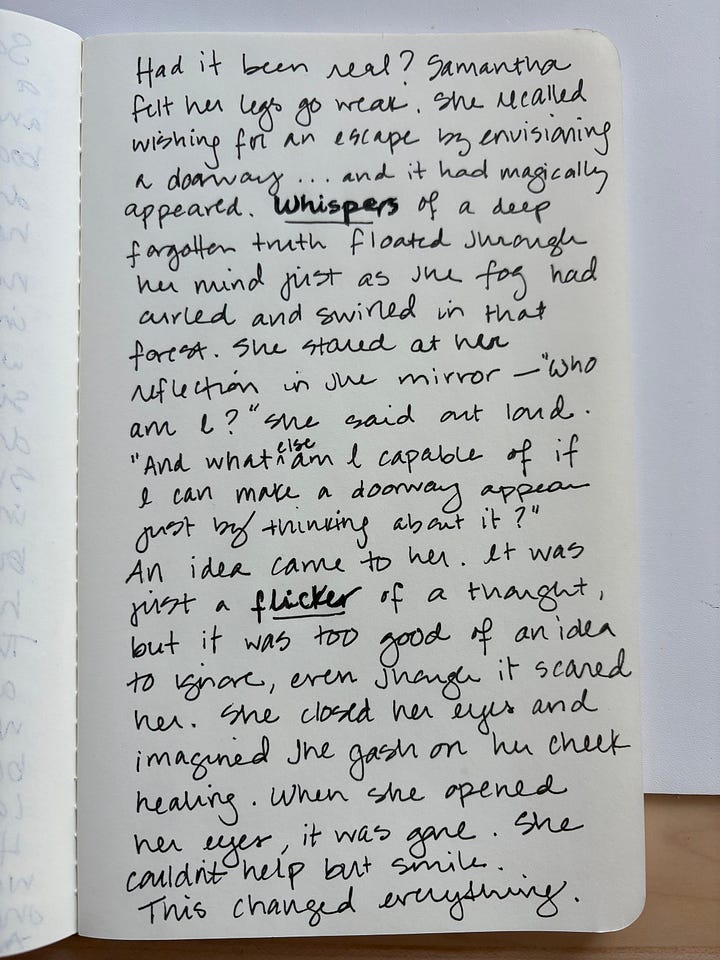 Had it been real? Samantha
felt her legs go weak. She recalled
wishing for an escape by envisioning
a doorway ... and it had magically
appeared. Whispers of a deep
forgotten truth floated through
her mind just as the fog had
curled and swirled in that
forest. She stared at her
reflection in the mirror — "Who
am I?" she said out loud.
"And what else am I capable of if
I can make a doorway appear
just by thinking about it?"
An idea came to her. It was
just a flicker of a thought,
but it was too good of an idea
to ignore, even though it scared
her. She closed her eyes and
imagined the gash on her cheek
healing. When she opened
her eyes, it was gone. She
couldn't help but smile.
This changed everything.